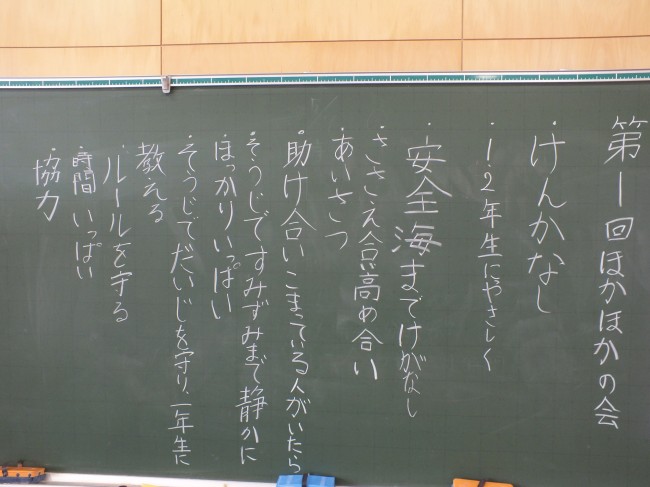 第1回ほかほかの会
・けんかなし
・1.2年生にやさしく
・安全海までけがなし
・ささえ合い高め合い
・あいさつ
・助け合いこまっている人がいたら
・そうじですみずみまで静かに
・ほっかりいっぱい
・そうじでだいじを守り、一年生に
教える
・ルールを守る
・時間いっぱい
・協力